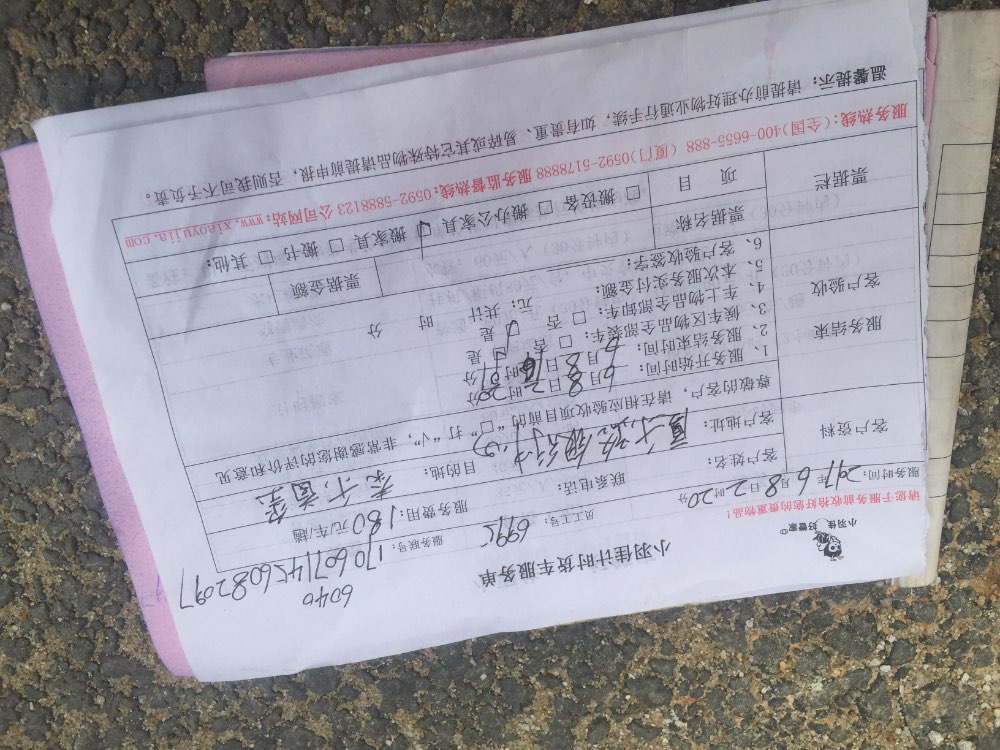 小羽佳 好管家
小羽佳计时货车服务单
6040
请您于服务前收拾好您的贵重物品！
员工号：699
服务联号：
服务时间： 年 6 月 8 日 2 时 20 分
服务费用：180 元/车/趟
客户资料
客户姓名：
联系电话：
客户地址：
目的地：
尊敬的客户，请在相应验收项目前的“□”打“√”，非常感谢您的评价和意见
服务结束
客户验收
1、服务开始时间：6月8日2时20分
2、服务结束时间：6月8日 时51分
3、候车区物品全部装车： 是 □ 否
4、车上物品全部卸车： 是 □ 否
5、本次服务实付金额： 元；共计 时 分
6、客户验收签字：
票据栏
票据名称
票据金额
项 目
□ 搬设备 □ 搬办公家具 搬家具 □ 搬书 □ 其他：
服务热线：(全国)400-6655-888 (厦门)0592-5178888 服务监督热线：0592-5888123 公司网站：www.xiaoyujia.com
温馨提示：请提前办理好物业通行手续，如有贵重、易碎或其它特殊物品请提前申报，否则我司不予负责。